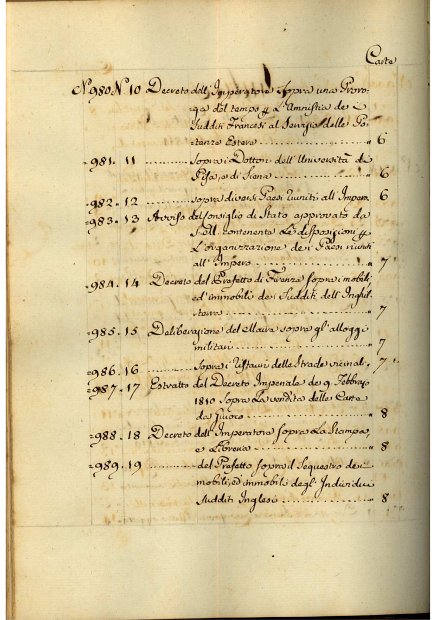 Carte
N° 980 N° 10 Decreto dell'Imperatore sopra una Proro=
ga del tempo p L'Amnistia de
Sudditi Francesi al Servizio delle Po=
tenze Estere " 6
=981. 11 sopra i Dottori dell'Università di
Pisa, e di Siena " 6
=982. 12 sopra diversi Paesi riuniti all'Impero 6
=983. 13 Avviso del Consiglio di Stato approvato da
S. M. contenente Le disposizioni p
L'organizzazione dei Paesi riuniti
all'Impero " 7
=984. 14 Decreto del Prefetto di Firenze sopra i mobili,
ed immobili dei Sudditi dell'Inghil=
terra " 7
=985. 15 Deliberazione del Maire sopra gl'alloggi
militari " 7
=986. 16 Sopra i Restauri delle Strade vicinali 7
=987. 17 Estratto del Decreto Imperiale de 9. Febbrajo
1810 Sopra La vendita delle Carte
da Giuoco " 8
=988. 18 Decreto dell'Imperatore sopra La Stampa,
e Libreria " 8
=989. 19 del Prefetto sopra il Sequestro dei
mobili, ed immobili degl'Individui
Sudditi Inglesi " 8